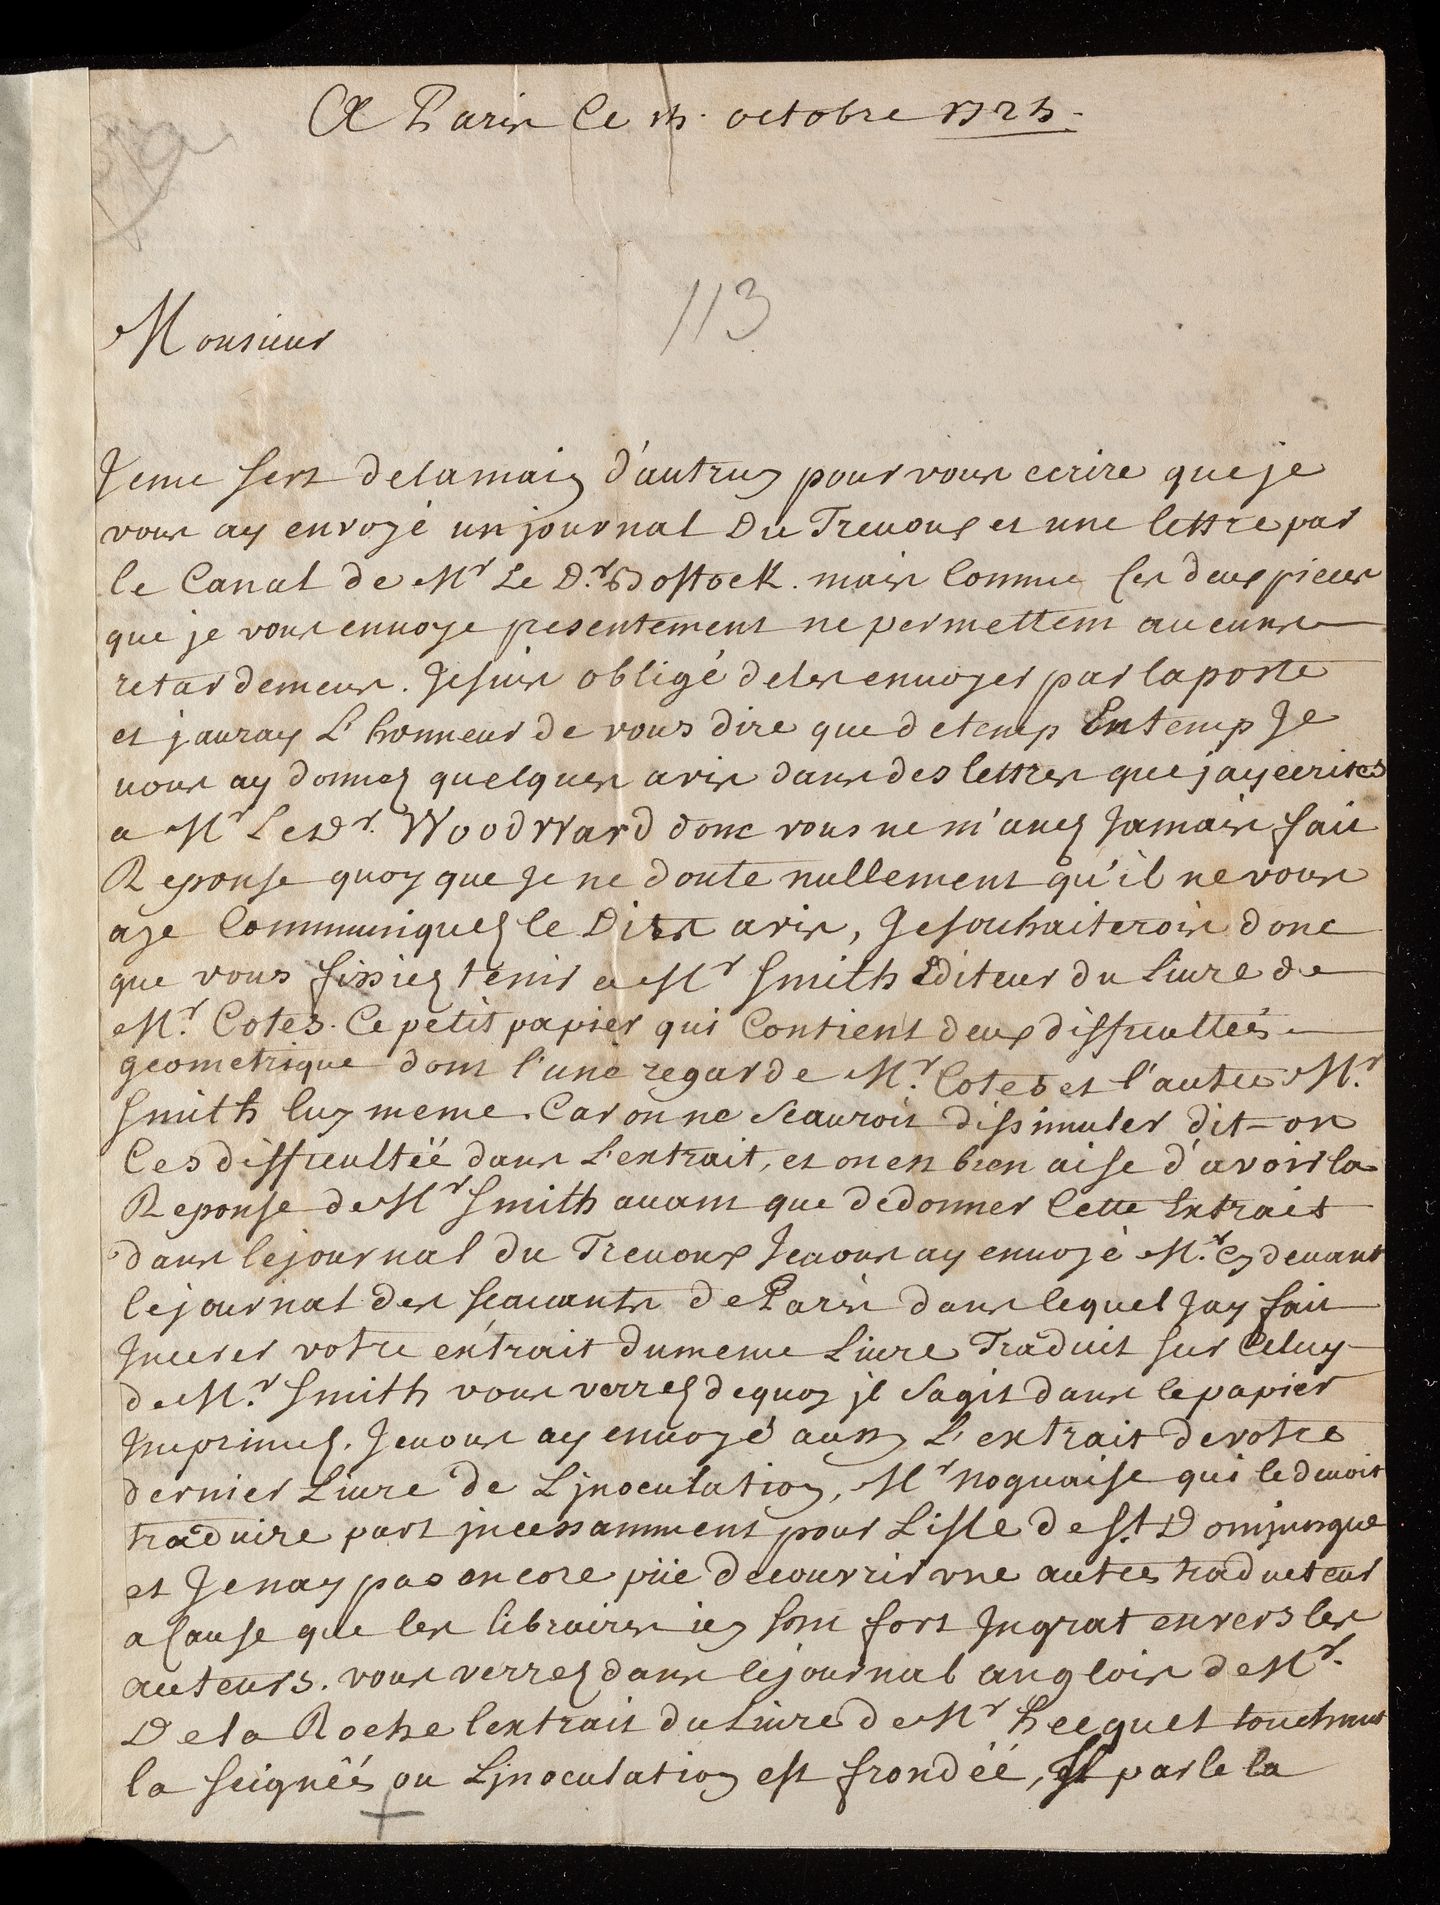 A Paris le 15. octobre 1725.
113
Monsieur
Je me sers de la main d'autruy pour vous ecrire que je
vous ay envoyé un journal Du Trevoux et une lettre par
le Canal de Mr Le Dr. Bostock. mais Comme Ces deux pieces
que je vous envoye presentement ne permettent aucuns
retardemens. Je suis obligé de les envoyer par la poste
et j auray L'honneur de vous dire que de temp En temp Je
vous ay donnez quelques avis dans des lettres que jay ecrites
a Mr Le Dr. Woodward dont vous ne m'avez Jamais fait
Reponse quoy que Je ne doute nullement qu'il ne vous
aye Communiquez le Dits avis, Je souhaiterois donc
que vous fissiez tenir a Mr Smith Editeur du Livre de
Mr. Cotes. Ce petit papier qui Contient deux difficultées
geometrique dont l'une regarde Mr. Cotes et l'autre Mr.
Smith luy meme. Car on ne Scauroit dissimuler dit-on
Ces difficultée dans L'extrait, et on est bien aise d'avoir la
Reponse de Mr Smith avant que de donner Cette Extrait
dans le journal du Trevoux Je vous ay envoyé Mr. Cy devant
le journal des scavants de Paris dans lequel Jay fait
Incerer votre extrait du meme Livre Traduit sur Celuy
de Mr. Smith vous verrez de quoy jl Sagit dans le papier
Imprimez. Je vous ay envoyé aussy L'extrait de votre
dernier Livre de Ljnoculation, Mr Noguaise qui le devoit
traduire part jncessamment pour Lisle de St. Domjnique
et Je nay pas encore püe decouvrir une autre traducteur
a Cause que les libraires icy sont fort Ingrat envers les
auteurs. vous verrez dans le journal anglois de Mr.
De la Roche lextrait du Livre de Mr hecquet touchant
la seignéé ou Ljnoculation est frondéé, Il parle la